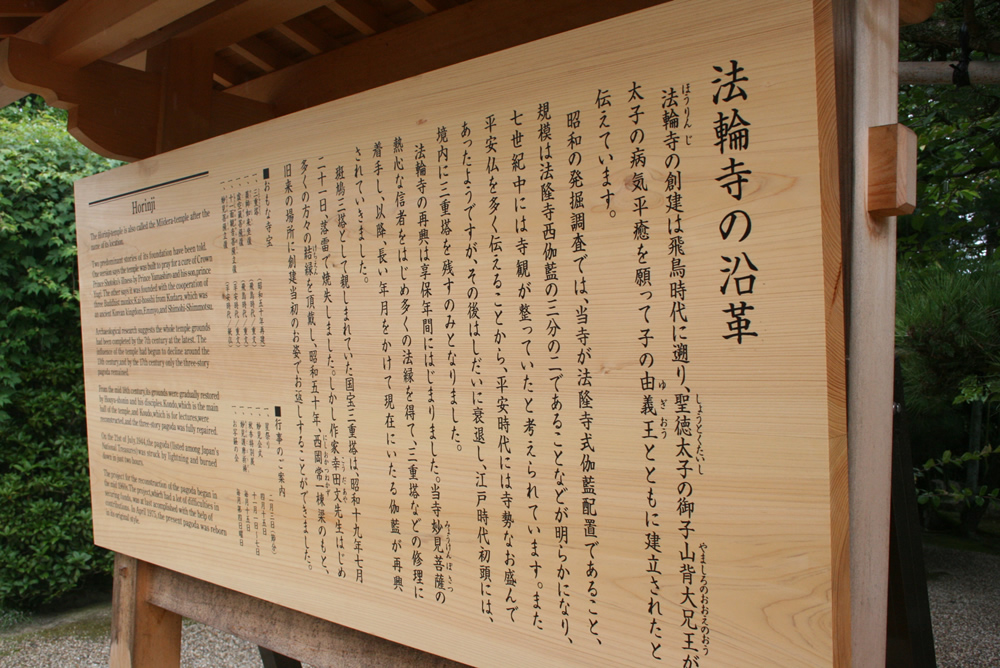 法輪寺の沿革
法輪寺の創建は飛鳥時代に遡り、聖徳太子の御子山背大兄王が
太子の病気平癒を願って子の由義王とともに建立されたと
伝えています。
昭和の発掘調査では、当寺が法隆寺式伽藍配置であること、
規模は法隆寺西伽藍の三分の二であることなどが明らかになり、
七世紀中には寺観が整っていたと考えられています。また
平安仏を多く伝えることから、平安時代には寺勢なお盛んで
あったようですが、その後はしだいに衰退し、江戸時代初頭には、
境内に三重塔を残すのみとなりました。
法輪寺の再興は享保年間にはじまりました。当寺妙見菩薩の
熱心な信者をはじめ多くの法縁を得て、三重塔などの修理に
着手し、以降、長い年月をかけて現在にいたる伽藍が再興
されていきました。
斑鳩三塔として親しまれていた国宝三重塔は、昭和十九年七月
二十一日、落雷で焼失しました。しかし作家幸田文先生はじめ
多くの方々の結縁を頂戴し、昭和五十年、西岡常一棟梁のもと、
旧来の場所に創建当初のお姿でお返しすることができました。
■おもな寺宝
三重塔 (昭和五十年再建)
■行事のご案内
星祭り 二月三日(節分)
妙見会式 四月十五日
秋季特別展 十一月一日~七日
毎月十五日
Horinji
The Horinji temple is also called the Miidera temple after the
name of its location.
Two predominant stories of its foundation have been told.
One version says the temple was built to pray for a cure of Crown
Prince Shotoku's illness by Prince Yamashiro and his son, prince
Yugi. The other says it was founded with the cooperation of
three Buddhist monks, Kaihoshi from Kudara, which was
an ancient Korean kingdom, Enmyo, and Shimohi-Shinmotsu.
Archaeological research suggests the whole temple grounds
had been completed by the 7th century at the latest. The
influence of the temple had begun to decline around the
12th century, and by the 17th century only the three-story
pagoda remained.
From the mid 18th century, its grounds were gradually restored
by Houyu-shonin and his disciples. Kondo, which is the main
hall of the temple, and Koudo, which is for lectures, were
reconstructed and the three-story pagoda was fully repaired.
On the 21st of July, 1944, the pagoda (listed among Japan's
National Treasures) was struck by lightning and burned
down in just two hours.
The project for the reconstruction of the pagoda began in
the mid 1960s. The project, which had a lot of difficulties in
securing funds, was at last accomplished with the help of
contributions. In April 1975, the present pagoda was reborn
in its original style.